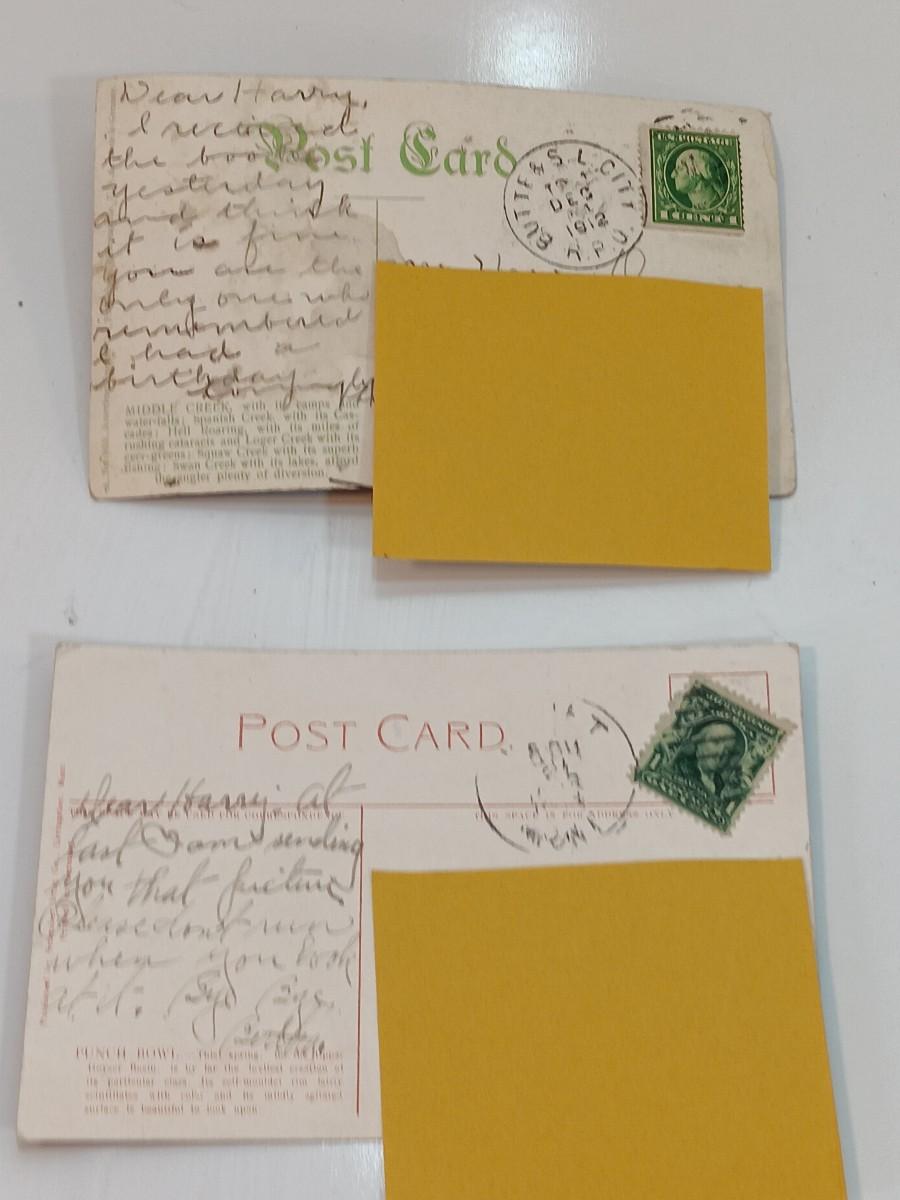 Dear Harry,
I received
the book
yesterday
and think
it is fine
you are the
only one who
remembered
I had a
birthday
Post Card
BUTTE & S. L. CITY
1914
R.P.O.
U.S. POSTAGE
1 CENT 1
MIDDLE CREEK, with its camps and
water-falls; Spanish Creek, with its Cas-
cades; Hell Roaring, with its miles of
rushing cataracts and Loger Creek with its
ever-greens; Squaw Creek with its superb
fishing; Swan Creek with its lakes, afford
the angler plenty of diversion.
POST CARD
THIS SPACE IS FOR ADDRESS ONLY
Dear Harry. At
last I am sending
you that picture
Please dont run
when you look
at it. Bye Bye.
PUNCH BOWL. This spring, in the Upper
Geyser Basin, is by far the loveliest creation of
its particular class. Its self-moulded rim fairly
scintillates with color and its mildly agitated
surface is beautiful to look upon.